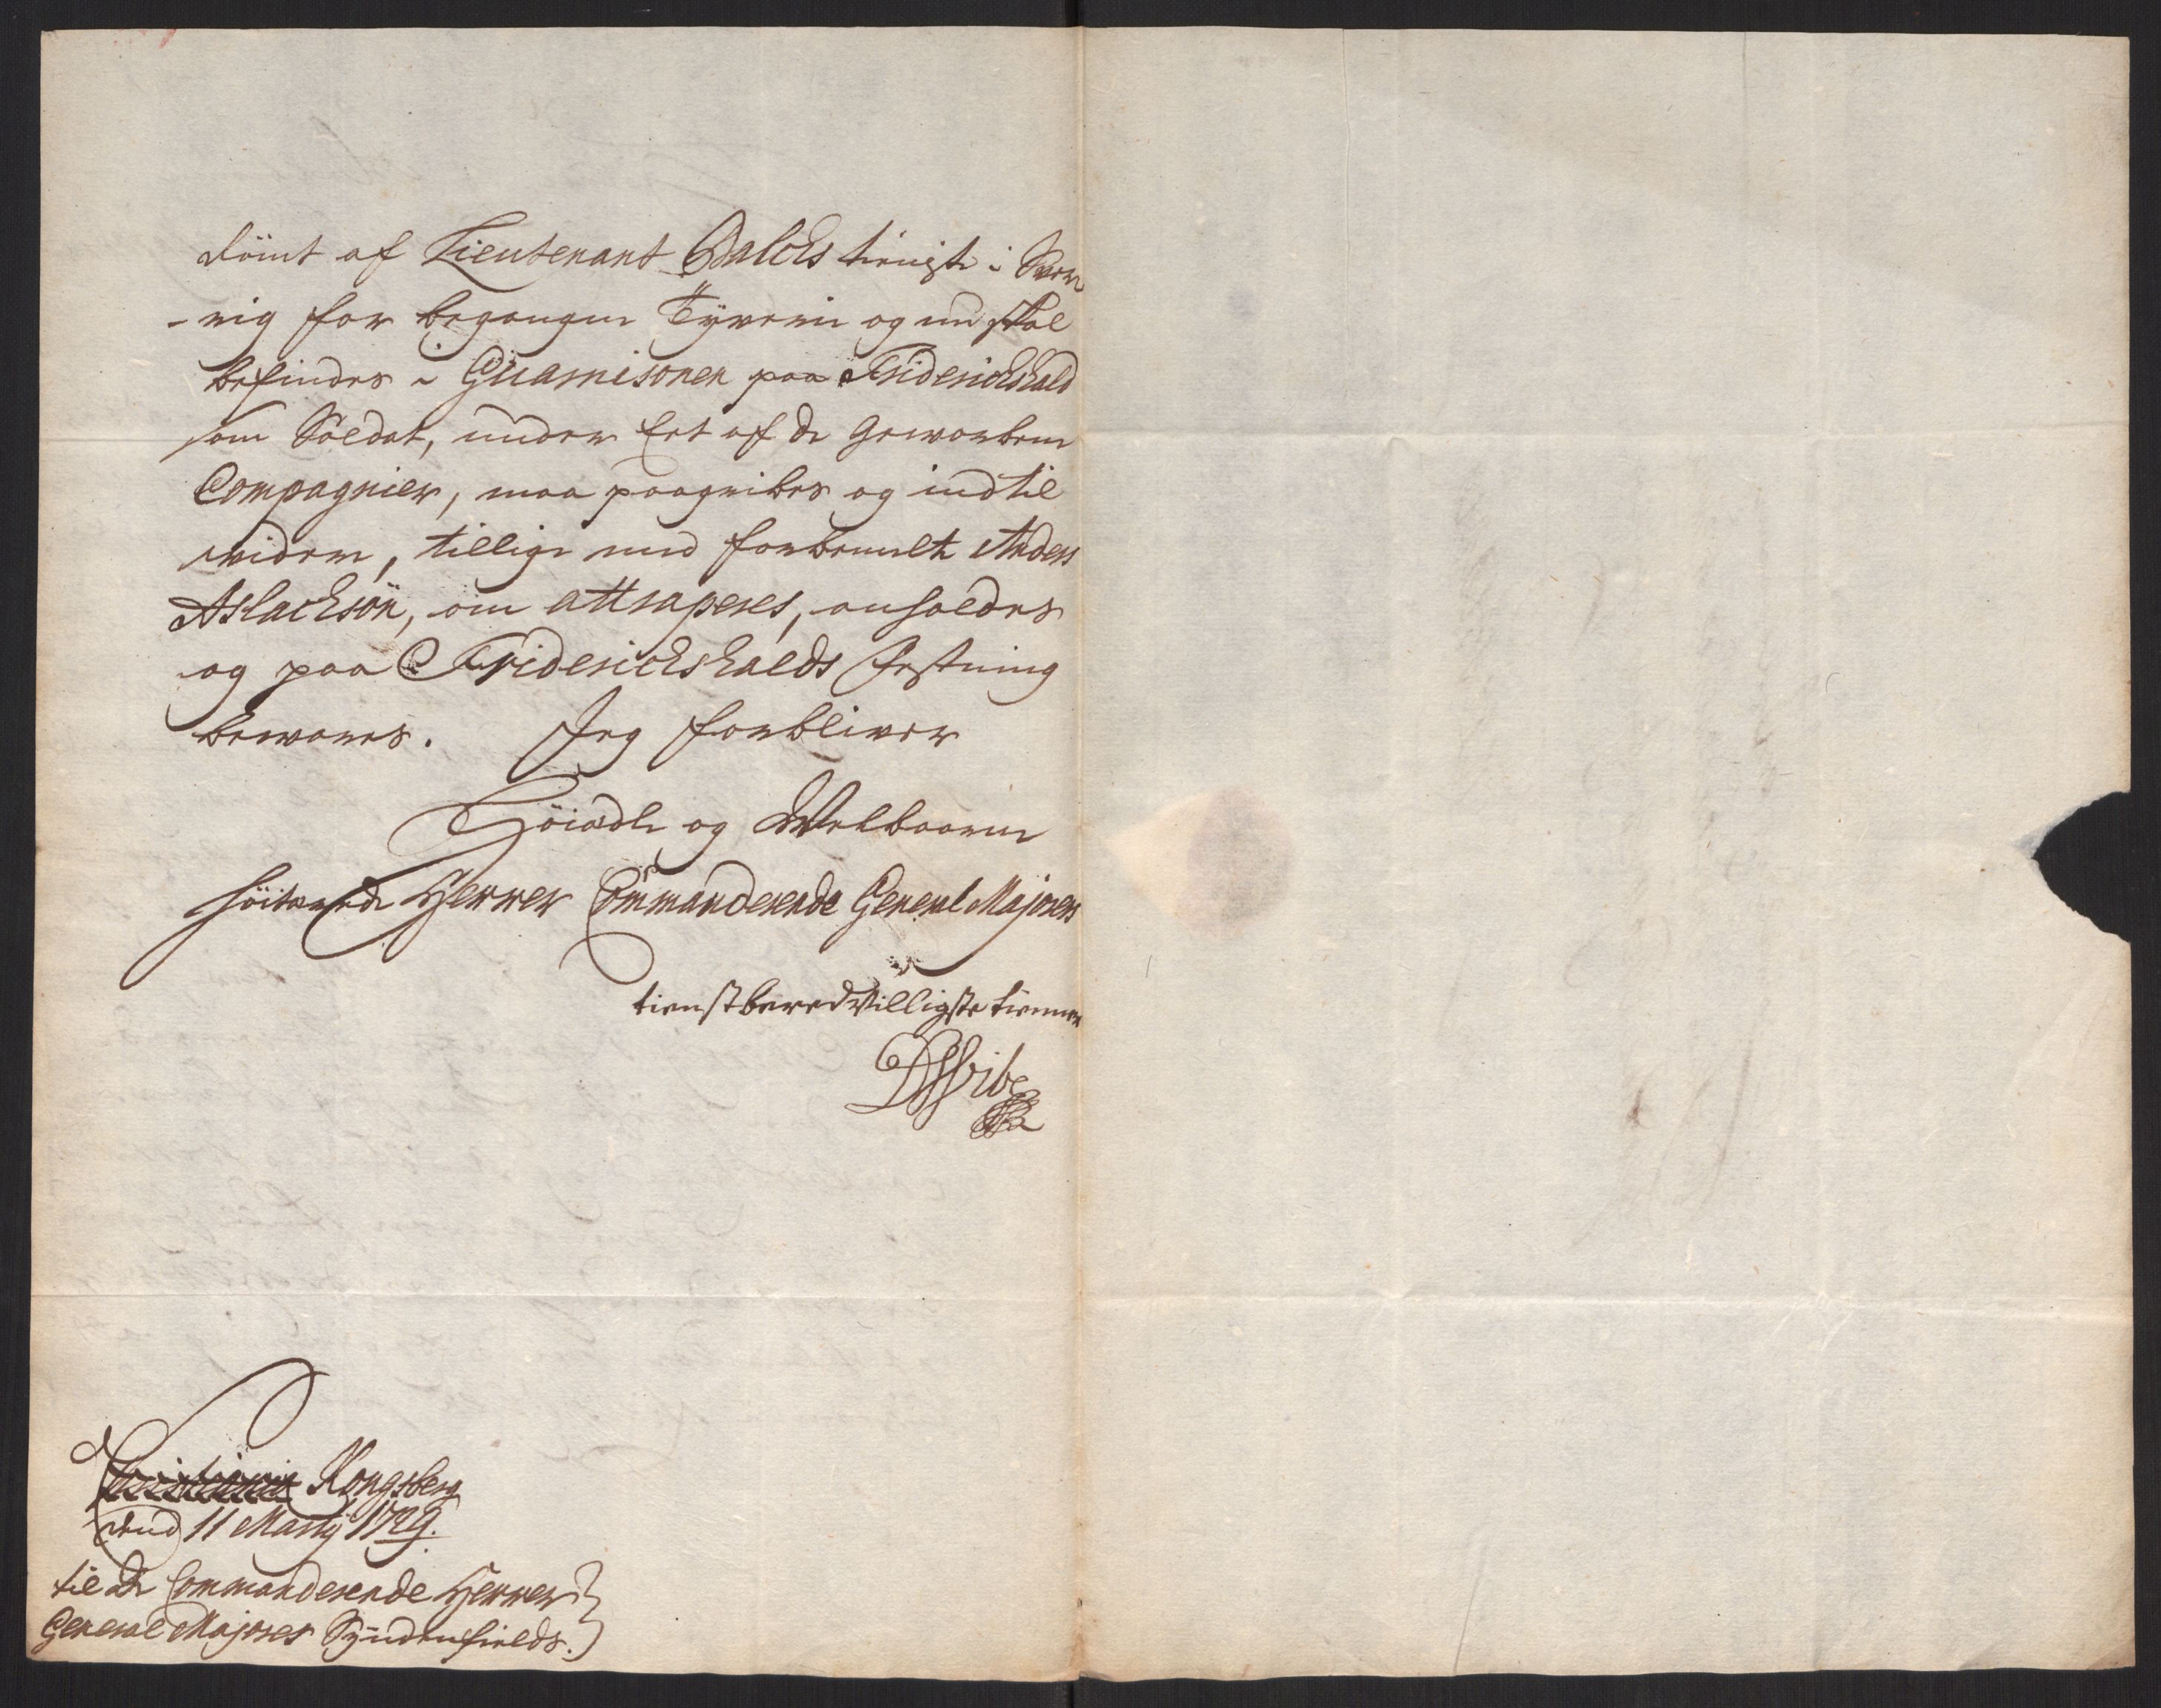 dömt af Lieutenant Balchs tieniste i Sver
-rig for begangen Tyverie og nu skal
befindes i Guarnisonen paa Friderichshald
som Soldat, under Eet af de geworbene
Compagnier, maa paagribes og indtil
widere, tillige med forbemelte Anders
Aslachsön, om attraperes, anholdes
og paa Friderichshalds Festning
bewares. Jeg forbliver
Höiædle og Welbaarne
höitærede Herrer Commanderende General Majorers
tienstberedvilligste tienner
DVibe
Christiania Kongsberg
dend 11 Martij 1729.
til De Commanderende Herrer
General Majorer Syndenfields.